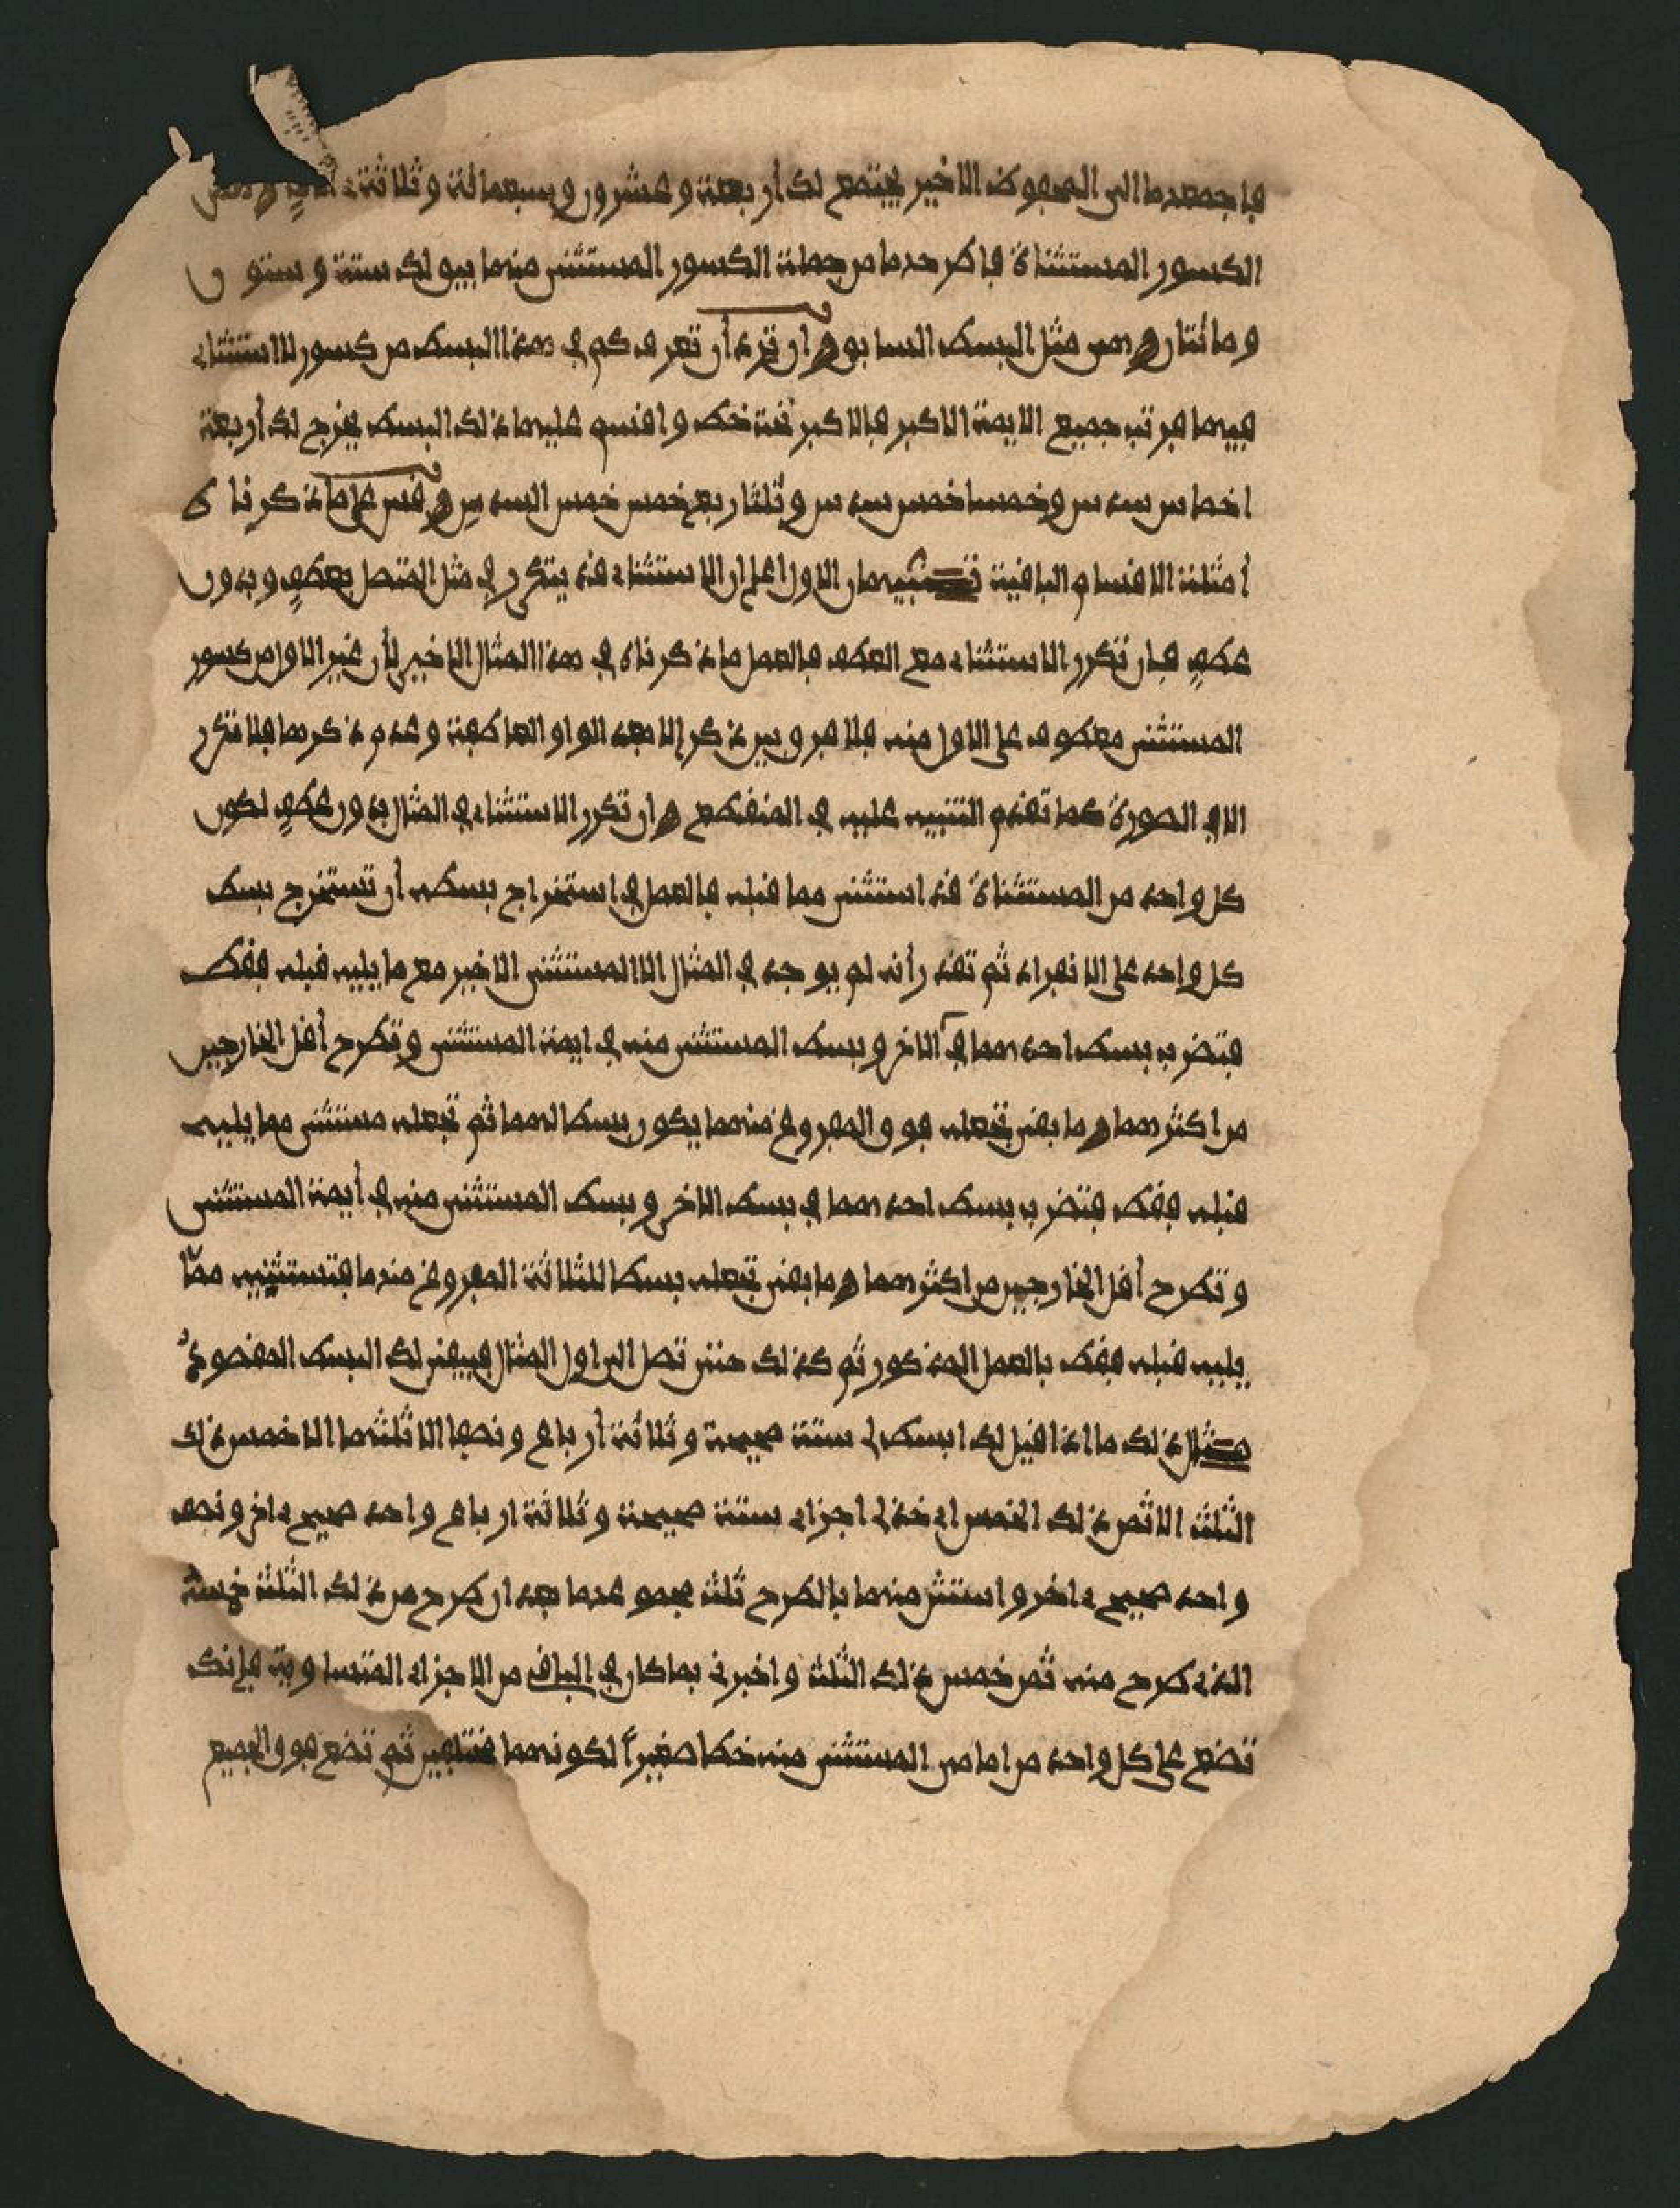 فاجمعهما الى المحفوظ الاخير يجتمع لك أربعة وعشرون وسبعمائة وثلاثة ءالاف وهي
الكسور المستثناة فاطرحها من جملة الكسور المستثنى منها يبق لك ستة وستون
ومائتان وهي مثل البسط السابق وان ترد أن تعرف كم في هذا البسط من كسور الاستثناء
فيها فرتب جميع الايمة الاكبر فالاكبر تحت خط واقسم عليها ذلك البسط يخرج لك أربعة
اخماس سدس وخمسا خمس سدس وثلثا ربع خمس خمس السدس وقس على ما ذكرناه
أمثلة الاقسام الباقية تنبيهان الاول اعلم ان الاستثناء قد يتكرر في مثل المتصل بعطف وبدون
عطف فإن تكرر الاستثناء مع العطف فالعمل ما ذكرناه في هذا المثال الاخير لأن غير الاول من كسور
المستثنى معطوف على الاول منه فلا فرق بين ذكر إلا بعد الواو العاطفة وعدم ذكرها فلا تكرر
الا في الصورة كما تقدم التنبيه عليه في المنقطع وان تكرر الاستثناء في المثال بدون عطف لكون
كل واحد من المستثناة قد استثنى مما قبله فالعمل في استخراج بسطه أن تستخرج بسط
كل واحد على الانفراد ثم تقدر أنه لم يوجد في المثال الا المستثنى الاخير مع ما يليه قبله فقط
فتضرب بسط احدهما في الاخر وبسط المستثنى منه في ايمة المستثنى وتطرح أقل الخارجين
من اكثرهما وما بقى تجعله هو والمفروغ منهما يكون بسطا لهما ثم تجعله مستثنى مما يليه
قبله فقط فتضرب بسط احدهما في بسط الاخر وبسط المستثنى منه في أيمة المستثنى
وتطرح أقل الخارجين من اكثرهما وما بقى تجعله بسطا للثلاثة المفروغ منها فتستثنيه ممّا
يليه قبله فقط بالعمل المذكور ثم كذلك حتى تصل الى اول المثال فيبقى لك البسط المقصود
مثال ذلك ما اذا قيل لك ابسط لى ستة صحيحة وثلاثة أرباع ونصفا الا ثلثها الا خمس ذلك
الثلث الا ثمن ذلك الخمس اى خذ لى اجزاء ستة صحيحة وثلاثة ارباع واحد صحيح ءاخر ونصف
واحد صحيح ءاخر واستثن منها بالطرح ثلث مجموعها بعد ان طرح من ذلك الثلث خمسه
الذى طرح منه ثمن خمس ذلك الثلث واخبرنى بما كان في الباقى من الاجزاء المتساوية فإنك
تضع على كل واحد من امامى المستثنى منه خطا صغيراً لكونهما مختلفين ثم تضع فوق الجميع